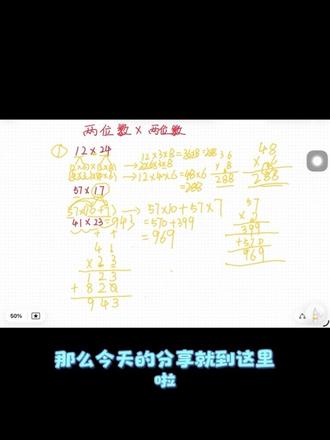 两位数 × 两位数
① 12×24
12×3×8=36×8=288
→2×6×4×8
→12×4×6=48×6
=288
36
× 8
288
48
× 6
288
57×17
57×(10+7) → 57×10+57×7
=570+399
=969
41×23=943
41
×23
123
+820
943
57
399
+570
969
50%
那么今天的分享就到这里
啦